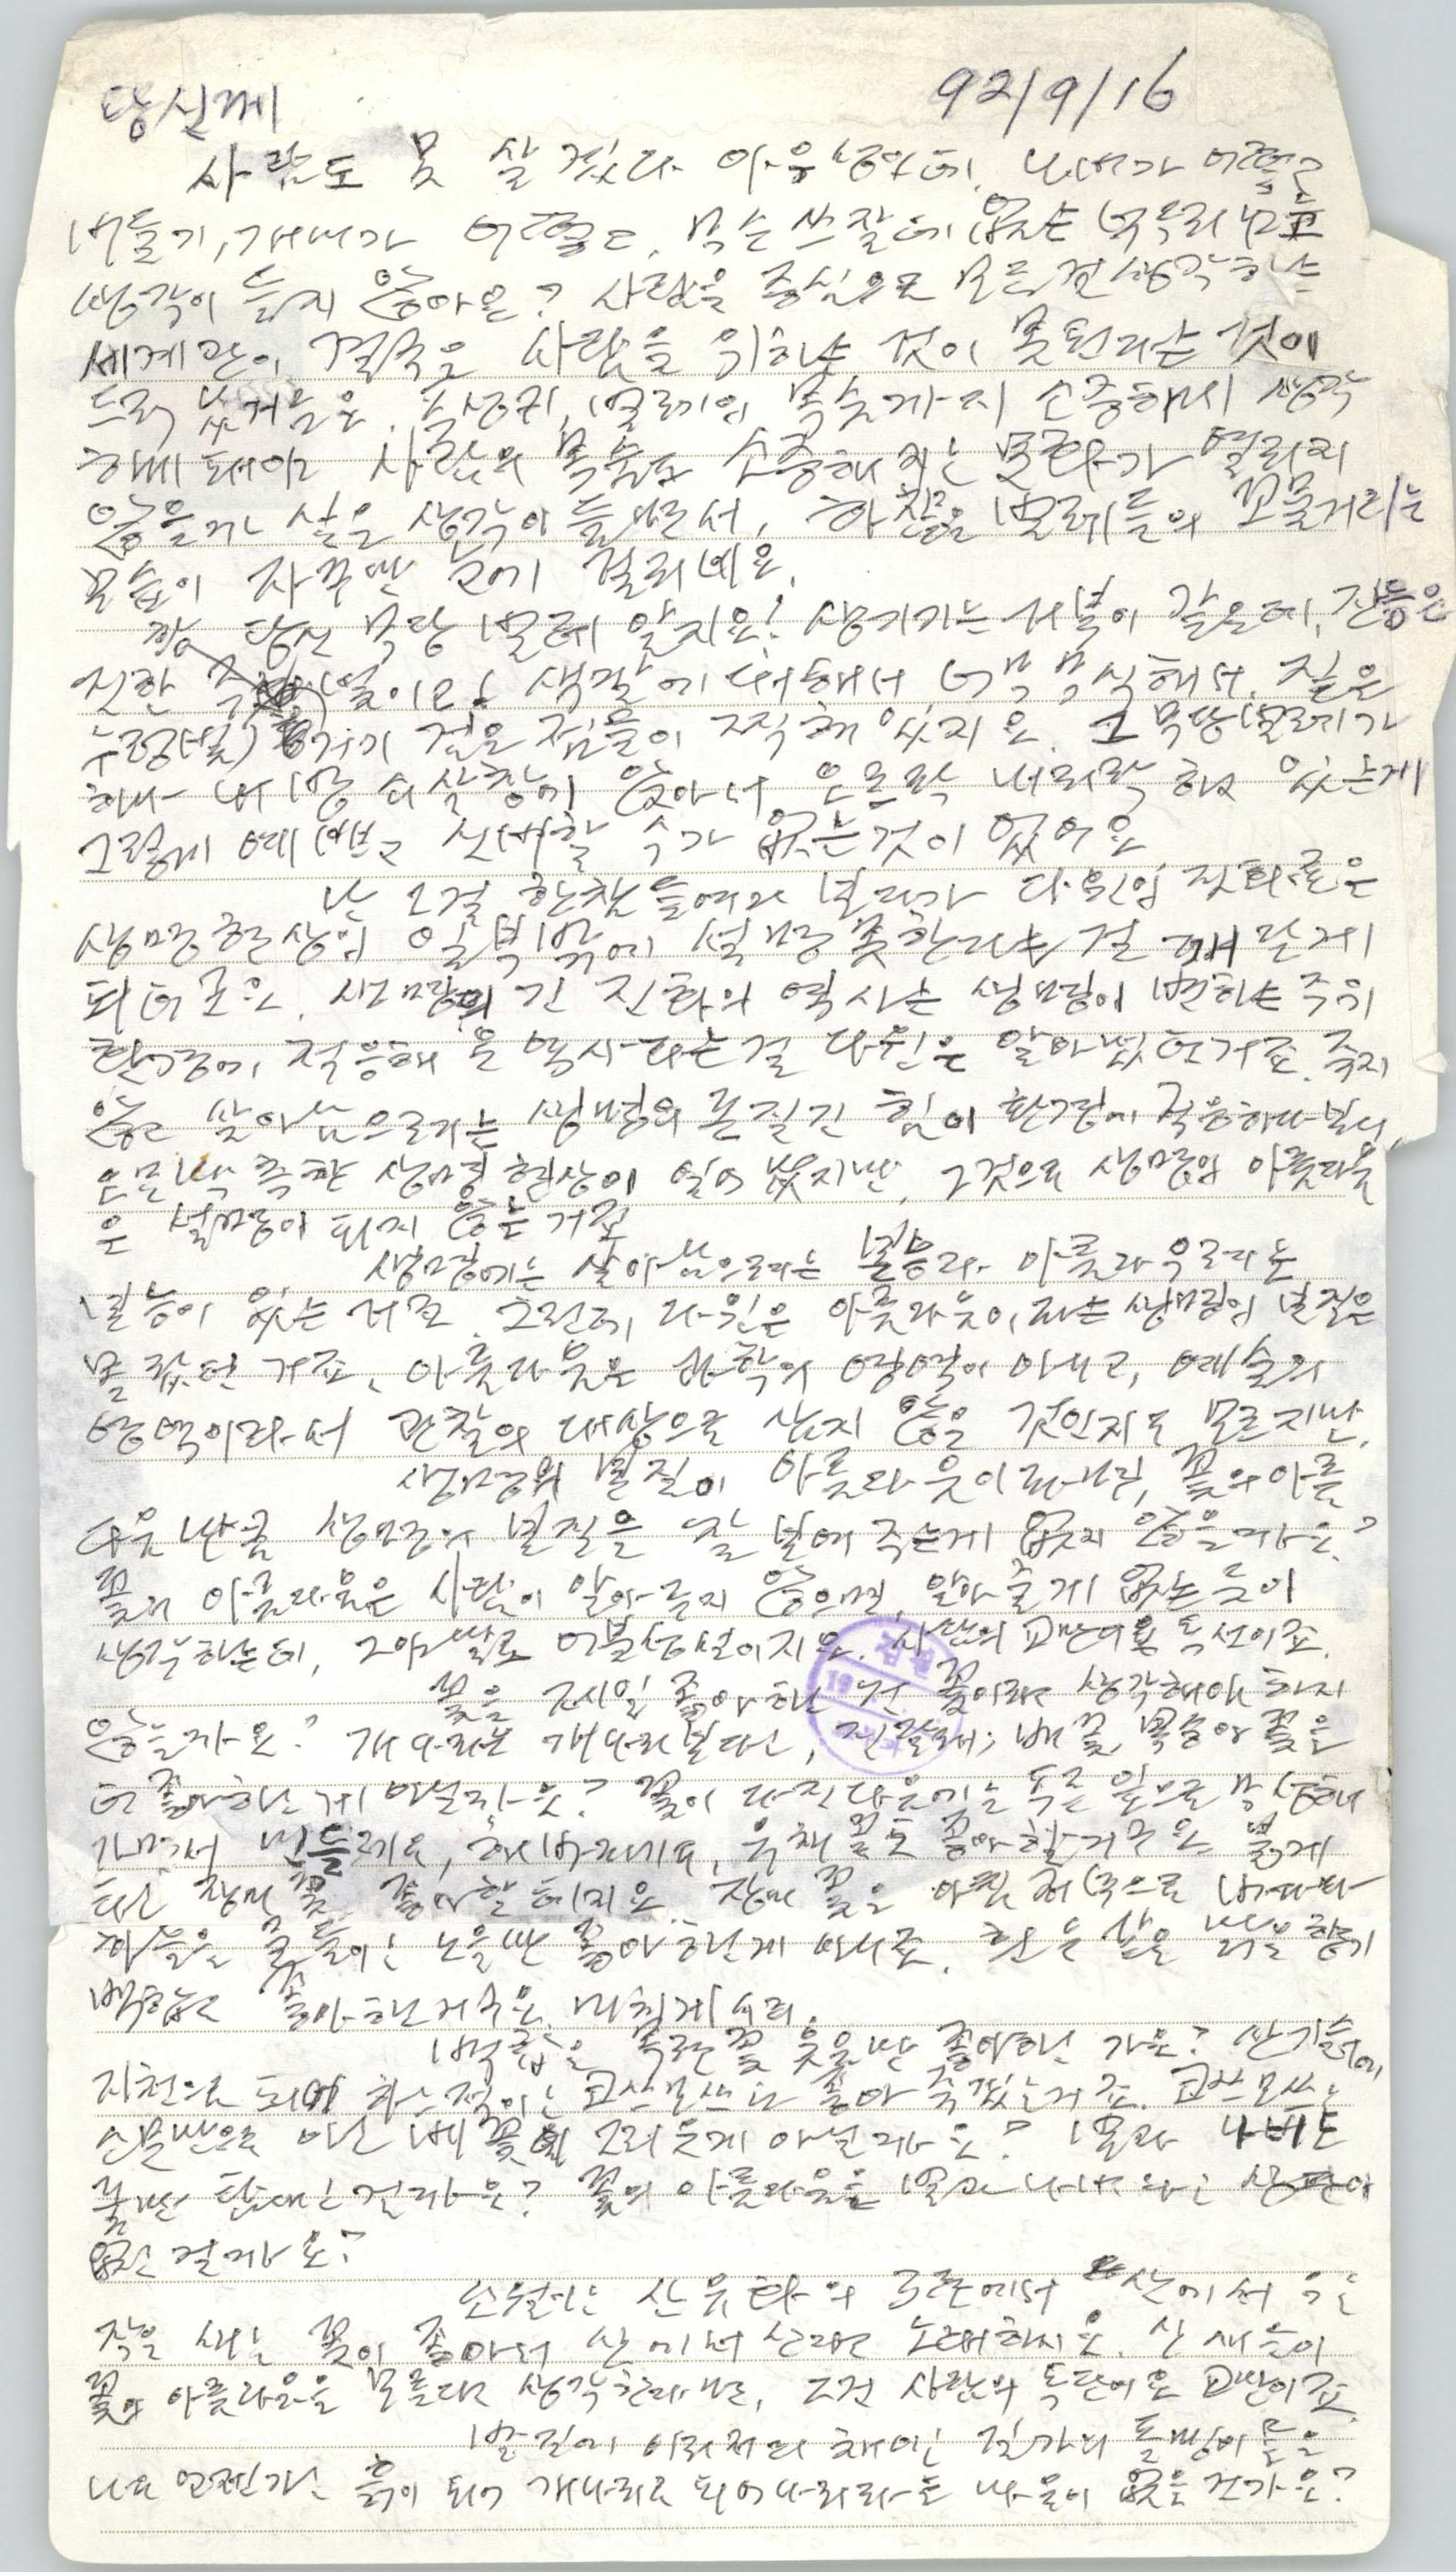 당신께 92/9/16
사람도 못 살 겠다 아우성인데, 나비가 어떻고
버들기, 개미가 어떻고, 무슨 쓰잘데 없는 넋두리냐고
생각이 들지 않아요? 사람을 중심으로 모든 걸 생각하는
세계관이 결국은 사람을 위하는 것이 못된다는 것이
드러났거들요. 풀 벌레의 목숨까지 소중하게 생각
하게 돼야 사람의 목숨도 소중해 지는 문화가 열리지
않을까 싶은 생각이 들면서, 하찮은 벌레들의 꼬물거리는
모습이 자꾸만 눈에 걸리네요.
참 당신 무당 벌레 알지요! 생기기는 거북이 같은데, 잔등은
진한 색깔에 대해서 너무 무식해서. 짙은
거기 검은 점들이 찍혀 있지요. 그 무당벌레가
하나 내 방 쇠살창에 앉아서 오르락 내리락 하고 있는게
그렇게 예쁘고 신비할 수가 없는것이 었어요
난 그걸 한참 들여다 보다가 다윈의 진화론은
생명현상의 일부밖에 설명 못한다는 걸 깨닫게
되더군요. 생명의 긴 진화의 역사는 생명이 변하는 주위
환경에 적응해 온 역사라는걸 다윈은 알아냈던거죠. 죽지
않고 살아남으려는 생명의 끈질긴 힘이 환경에 적응하다 보니,
생명 현상이 일어 났지만, 그것으로 생명의 아름다움
은 설명이 되지 않는 거죠
생명에는 살아남으려는 본능과 아름다우려는
본능이 있는 거죠. 그런데, 다윈은 아름다움이라는 생명의 본질은
몰랐던 거죠. 아름다움은 과학의 영역이 아니고, 예술의
영역이라서 관찰의 대상으로 삼지 않은 것인지도 모르지만.
생명의 본질이 아름다움이라면, 꽃의 아름
다움 만큼 생명의 본질을 잘 보여 주는게 없지 않을까요?
꽃의 아름다움은 사람이 알아주지 않으면, 알아 줄게 없는 듯이
생각하는데, 그야 말로 어불성설이지요. 사람의 교만이요 독선이죠.
꽃을 제일 좋아하는 건 꽃이라고 생각해야 하지
않을까요? 개나리는 개나리보다는, 진달래, 배꽃, 복숭아 꽃을
더 좋아하는게 아닐까요? 꽃이 다 진 다음에는 푸른 잎으로 무성해
가면서 민들레요, 해바라기요, 유채 꽃도 좋아할거구요 붉게
타는 장미 꽃도 좋아할 테지요. 장미 꽃은 아침 저녁으로
하늘을 물들이는 노을만 좋아하는게 아니죠. 흰 눈 같은 맑은 향기
백합도 좋아하는거구요, 미칠게시리.
백합은 푸른 꽃 웃음만 좋아하는 가요? 산기슭에
지천으로 피어 하늘거리는 코스모스도 좋아 죽겠는거죠. 코스모스는
눈물만으로 아는 배꽃이 그리운게 아닐까요? 벌과 나비도
꿀만 탐내는 걸까요? 꽃의 아름다움은 벌과 나비와는 상관이
없는 걸까요?
소월은 산유화의 3절에서 산에서 우는
작은 새는 꽃이 좋아서 산에서 산다고 노래하지요. 산 새들이
꽃의 아름다움을 모른다고 생각한다면, 그건 사람의 독단이요 교만이죠
발길에 이리저리 채이는 길가의 돌멩이들은
나도 언젠가는 흙이 되어 개나리로 피어나리라는 마음이 없을 건가요?